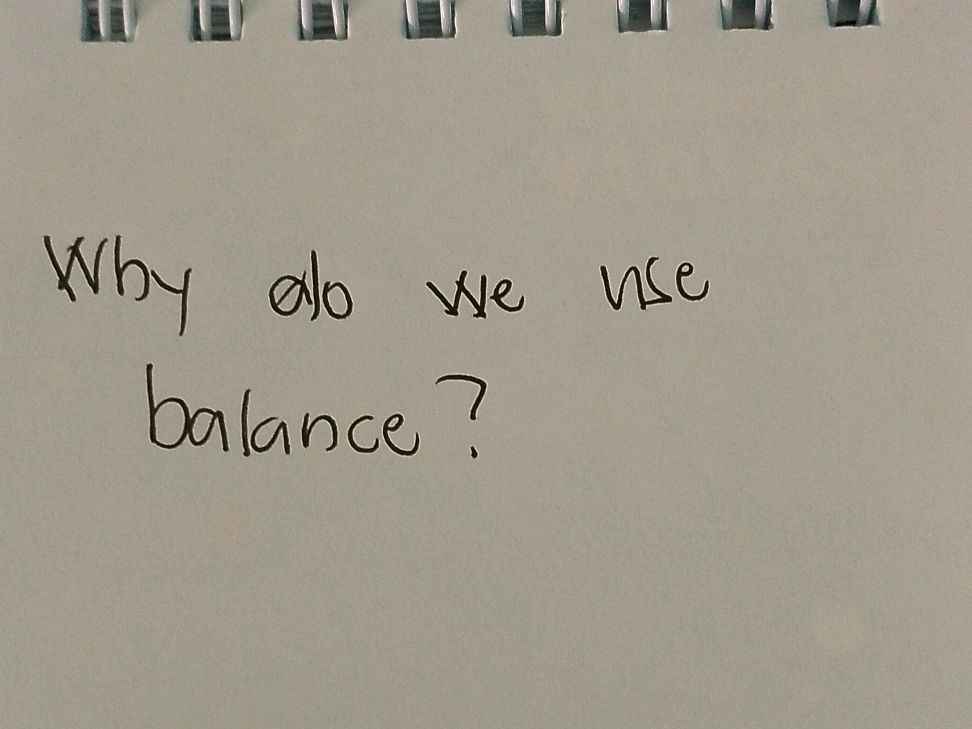 Why do we use
balance?